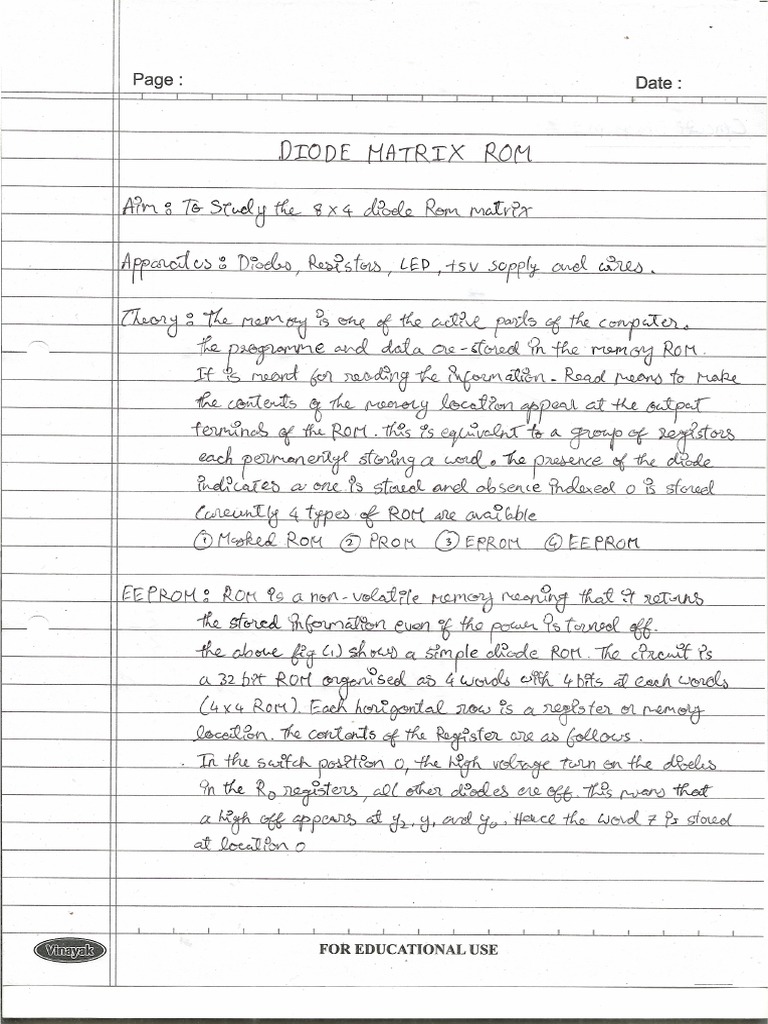 Page :
Date :
DIODE MATRIX ROM
Aim : To Study the 8 x 4 diode Rom matrix
Apparatus : Diodes, Resistors, LED, +5V supply and wires.
Theory : The memory is one of the active parts of the computer.
the programme and data are-stored in the memory ROM.
It is meant for reading the information - Read means to make
the contents of the memory location appear at the output
terminals of the ROM. this is equivalent to a group of registors
each permanentyl storing a word. The presence of the diode
indicates a one is stored and absence indexed 0 is stored
Careuntly 4 types of ROM are available
① Masked ROM ② PROM ③ EPROM ④ EEPROM
EEPROM : ROM is a non-volatile memory meaning that it returns
the stored information even if the power is turned off.
the above fig (1) shows a simple diode ROM. The circuit is
a 32 bit ROM organised as 4 words with 4 bits at each words
(4x4 ROM). Each horigontal row is a register or memory
location. The contents of the Register are as follows.
. In the switch position 0, the high voltage turn on the diodes
in the R0 registers, all other diodes are off. this means that
a high off appears at y2, y, and y0. Hence the word 7 is stored
at location 0
Vinayak
FOR EDUCATIONAL USE